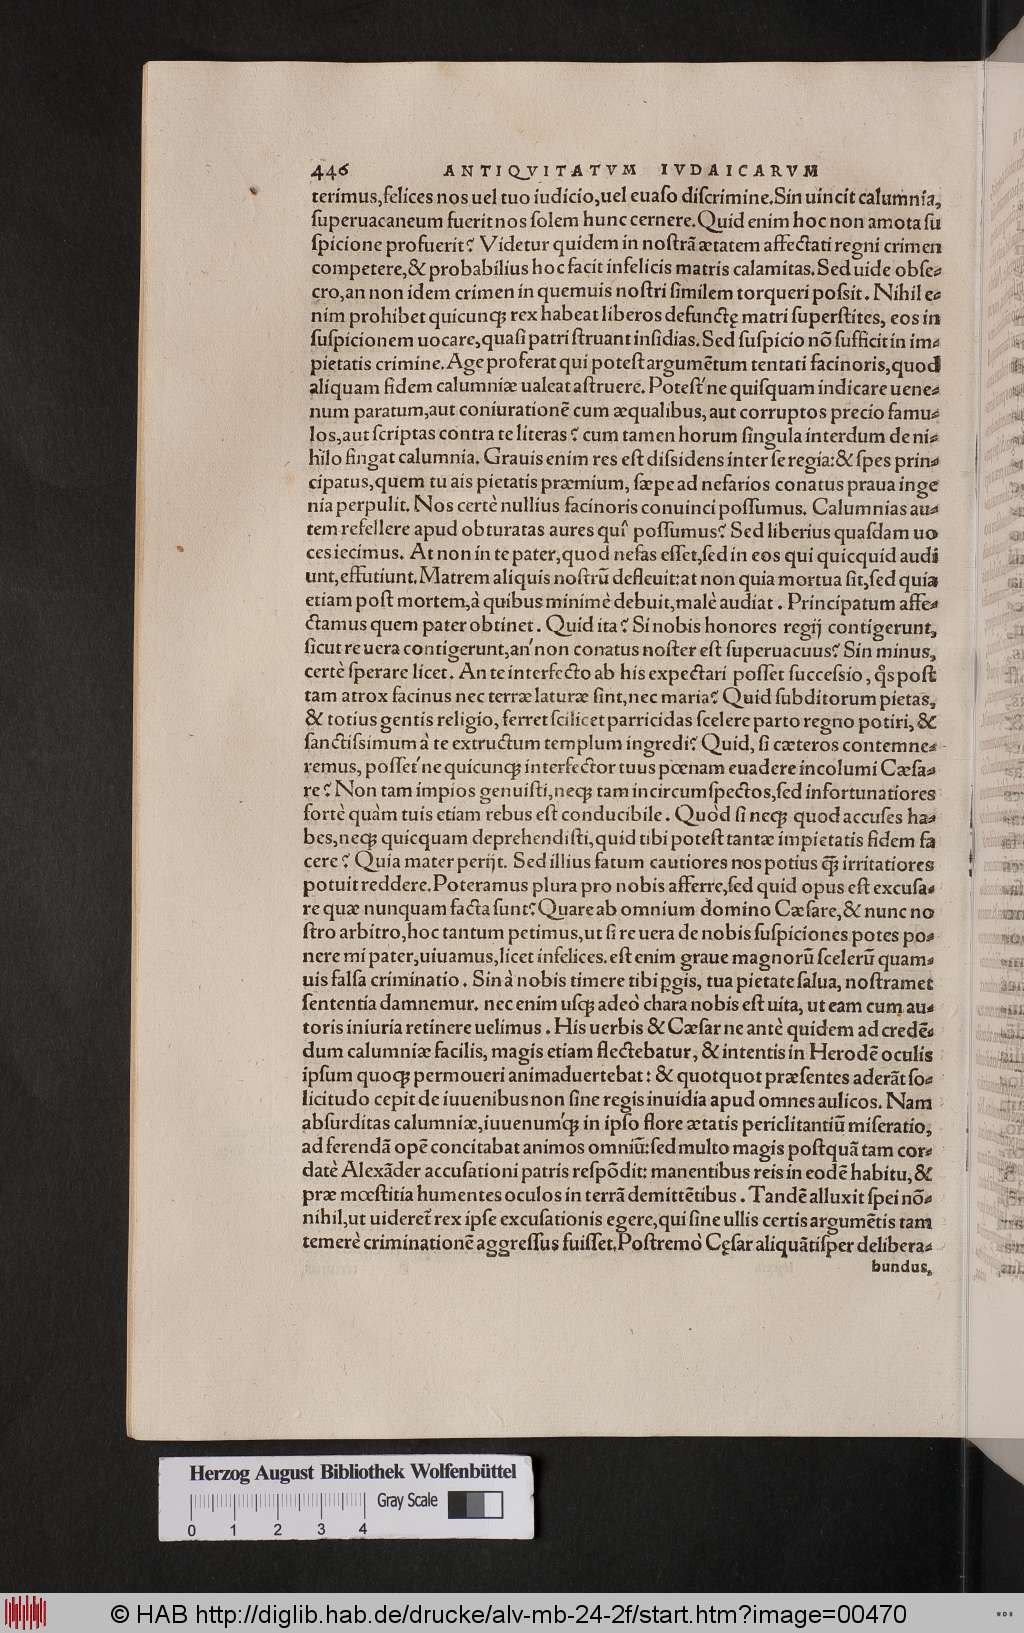 446 ANTIQVITATVM IVDAICARVM
terimus,felices nos uel tuo iudicio,uel euaso discrimine.Sin uincit calumnia,
superuacaneum fuerit nos solem hunc cernere.Quid enim hoc non amota su
spicione profuerit? Videtur quidem in nostrã ætatem affectati regni crimen
competere,& probabilius hoc facit infelicis matris calamitas.Sed uide obse-
cro,an non idem crimen in quemuis nostri similem torqueri possit. Nihil e-
nim prohibet quicunq; rex habeat liberos defunctę matri superstites, eos in
suspicionem uocare,quasi patri struant insidias.Sed suspicio nõ sufficit in im-
pietatis crimine.Age proferat qui potest argumẽtum tentati facinoris,quod
aliquam fidem calumniæ ualeat astruere. Potest'ne quisquam indicare uene-
num paratum,aut coniurationẽ cum æqualibus, aut corruptos precio famu-
los,aut scriptas contra te literas? cum tamen horum singula interdum de ni-
hilo fingat calumnia. Grauis enim res est dissidens inter se regia:& spes prin-
cipatus,quem tu ais pietatis præmium, sæpe ad nefarios conatus praua inge
nia perpulit. Nos certè nullius facinoris conuinci possumus. Calumnias au-
tem refellere apud obturatas aures quî possumus? Sed liberius quasdam uo
ces iecimus. At non in te pater,quod nefas esset,sed in eos qui quicquid audi
unt,effutiunt.Matrem aliquis nostrũ defleuit:at non quia mortua sit,sed quia
etiam post mortem,à quibus minimè debuit,malè audiat. Principatum affe-
ctamus quem pater obtinet. Quid ita? Si nobis honores regij contigerunt,
sicut re uera contigerunt,an'non conatus noster est superuacuus? Sin minus,
certè sperare licet. An te interfecto ab his expectari posset successio, q̃s post
tam atrox facinus nec terræ laturæ sint,nec maria? Quid subditorum pietas,
& totius gentis religio, ferret scilicet parricidas scelere parto regno potiri, &
sanctissimum à te extructum templum ingredi? Quid, si cæteros contemne-
remus, posset'ne quicunq; interfector tuus pœnam euadere incolumi Cæsa-
re? Non tam impios genuisti,neq; tam incircumspectos,sed infortunatiores
fortè quàm tuis etiam rebus est conducibile. Quòd si neq; quod accuses ha-
bes,neq; quicquam deprehendisti,quid tibi potest tantæ impietatis fidem fa
cere? Quia mater perijt. Sed illius fatum cautiores nos potius q̃; irritatiores
potuit reddere.Poteramus plura pro nobis afferre,sed quid opus est excusa-
re quæ nunquam facta sunt? Quare ab omnium domino Cæsare,& nunc no
stro arbitro,hoc tantum petimus,ut si re uera de nobis suspiciones potes po-
nere mi pater,uiuamus,licet infelices. est enim graue magnorũ scelerũ quam-
uis falsa criminatio. Sin à nobis timere tibi ꝑgis, tua pietate salua, nostramet
sententia damnemur. nec enim usq; adeò chara nobis est uita, ut eam cum au-
toris iniuria retinere uelimus. His uerbis & Cæsar ne antè quidem ad credẽ-
dum calumniæ facilis, magis etiam flectebatur, & intentis in Herodẽ oculis
ipsum quoq; permoueri animaduertebat: & quotquot præsentes aderãt so-
licitudo cepit de iuuenibus non sine regis inuidia apud omnes aulicos. Nam
absurditas calumniæ,iuuenum'q; in ipso flore ætatis periclitantiũ miseratio,
ad ferendã opẽ concitabat animos omniũ:sed multo magis postquã tam cor-
datè Alexãder accusationi patris respõdit: manentibus reis in eodẽ habitu, &
præ mœstitia humentes oculos in terrã demittẽtibus. Tandẽ alluxit spei nõ-
nihil,ut uideret̃ rex ipse excusationis egere,qui sine ullis certis argumẽtis tam
temerè criminationẽ aggressus fuisset.Postremò Cęsar aliquãtisper delibera-
bundus,
Herzog August Bibliothek Wolfenbüttel
Gray Scale
0 1 2 3 4
© HAB http://diglib.hab.de/drucke/alv-mb-24-2f/start.htm?image=00470